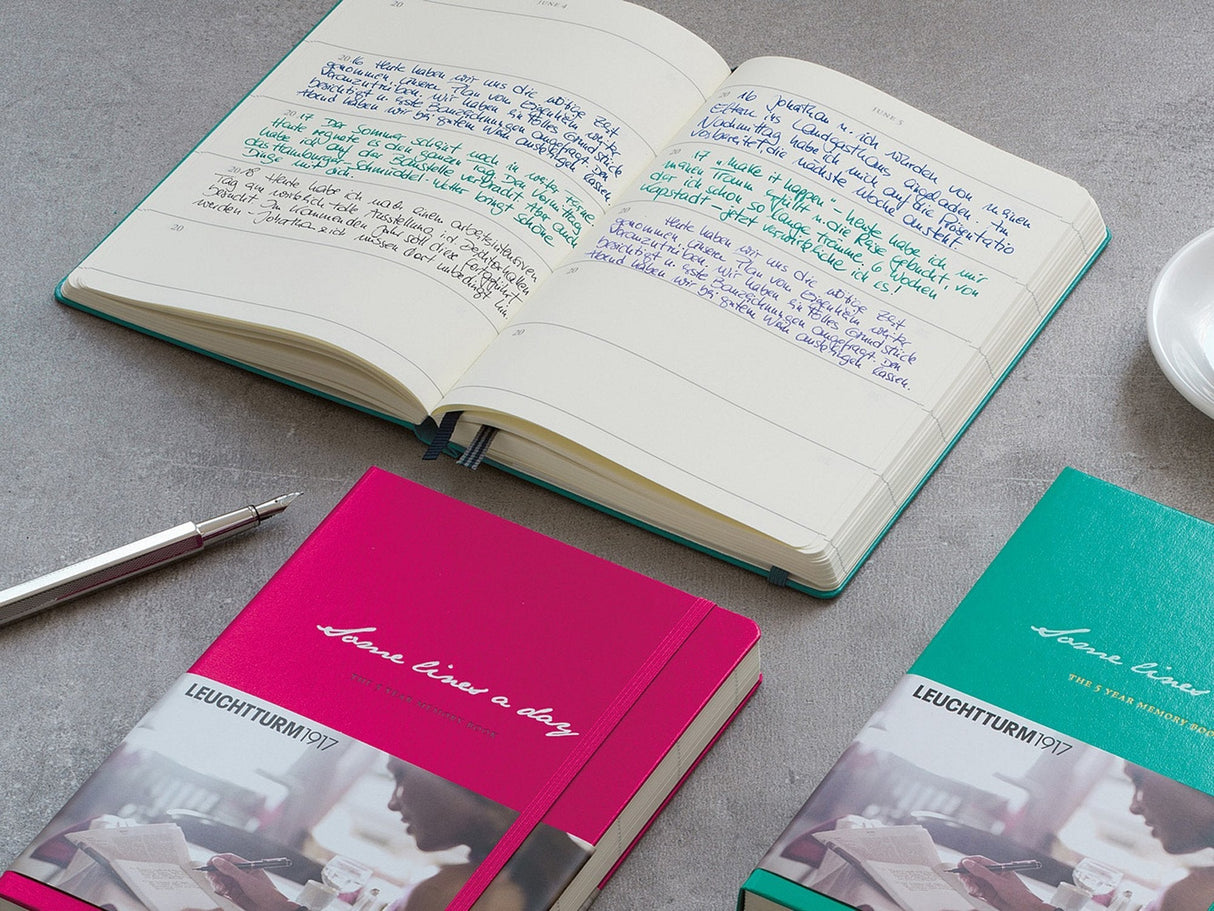 20
JUNE 4
2016 Heute haben wir uns die nötige Zeit
genommen, unseren Plan vom Eigenheim weiter
voranzutreiben. Wir haben ein tolles Grundstück
besichtigt u. erste Bauzeichnungen angefragt. Den
Abend haben wir bei gutem Wein ausklingen lassen.
2017 Der Sommer scheint noch in weiter Ferne.
Heute regnete es den ganzen Tag. Den Vormittag
habe ich auf der Baustelle verbracht. Aber auch
das Hamburger-Schmuddel-Wetter bringt schöne
Dinge mit sich.
2018 Heute habe ich nach einem arbeitsintensiven
Tag die wirklich tolle Ausstellung i.d. Deichtorhallen
besucht. Im kommenden Jahr soll diese fortgeführt
werden - Johanna u. ich müssen dort unbedingt hin.
20
JUNE 5
2016 Johathan u. ich wurden von meinen
Eltern ins Landgasthaus eingeladen. Am
Nachmittag habe ich mich auf die Präsentation
vorbereitet, die nächste Woche ansteht.
2017 "make it happen" - heute habe ich mir
meinen Traum erfüllt u. die Reise gebucht, von
der ich schon so lange träume. 6 Wochen
Kapstadt - jetzt verwirkliche ich es!
20 Heute haben wir uns die nötige Zeit
genommen, unseren Plan vom Eigenheim weiter
voranzutreiben. Wir haben ein tolles Grundstück
besichtigt u. erste Bauzeichnungen angefragt. Den
Abend haben wir bei gutem Wein ausklingen lassen.
20
20
Some lines a day
THE 5 YEAR MEMORY BOOK
LEUCHTTURM1917
Some lines
THE 5 YEAR MEMORY BOO
LEUCHTTURM1917